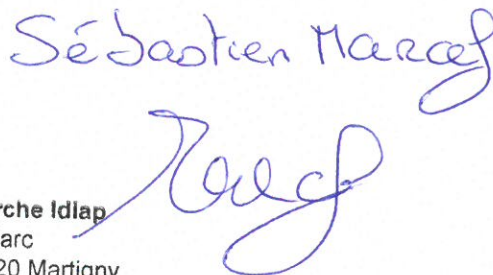 Sébastien Marcel
rche Idiap
arc
20 Martigny